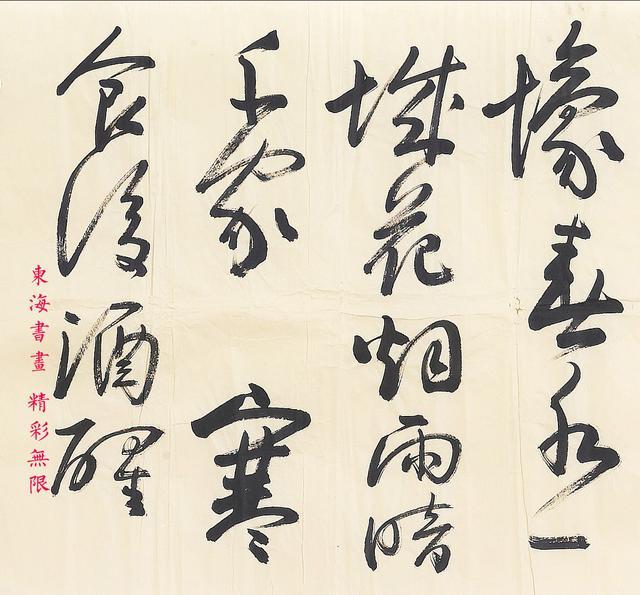 壕春水一
城花烟雨暗
千家 寒
食後酒醒
東海書畫 精彩無限